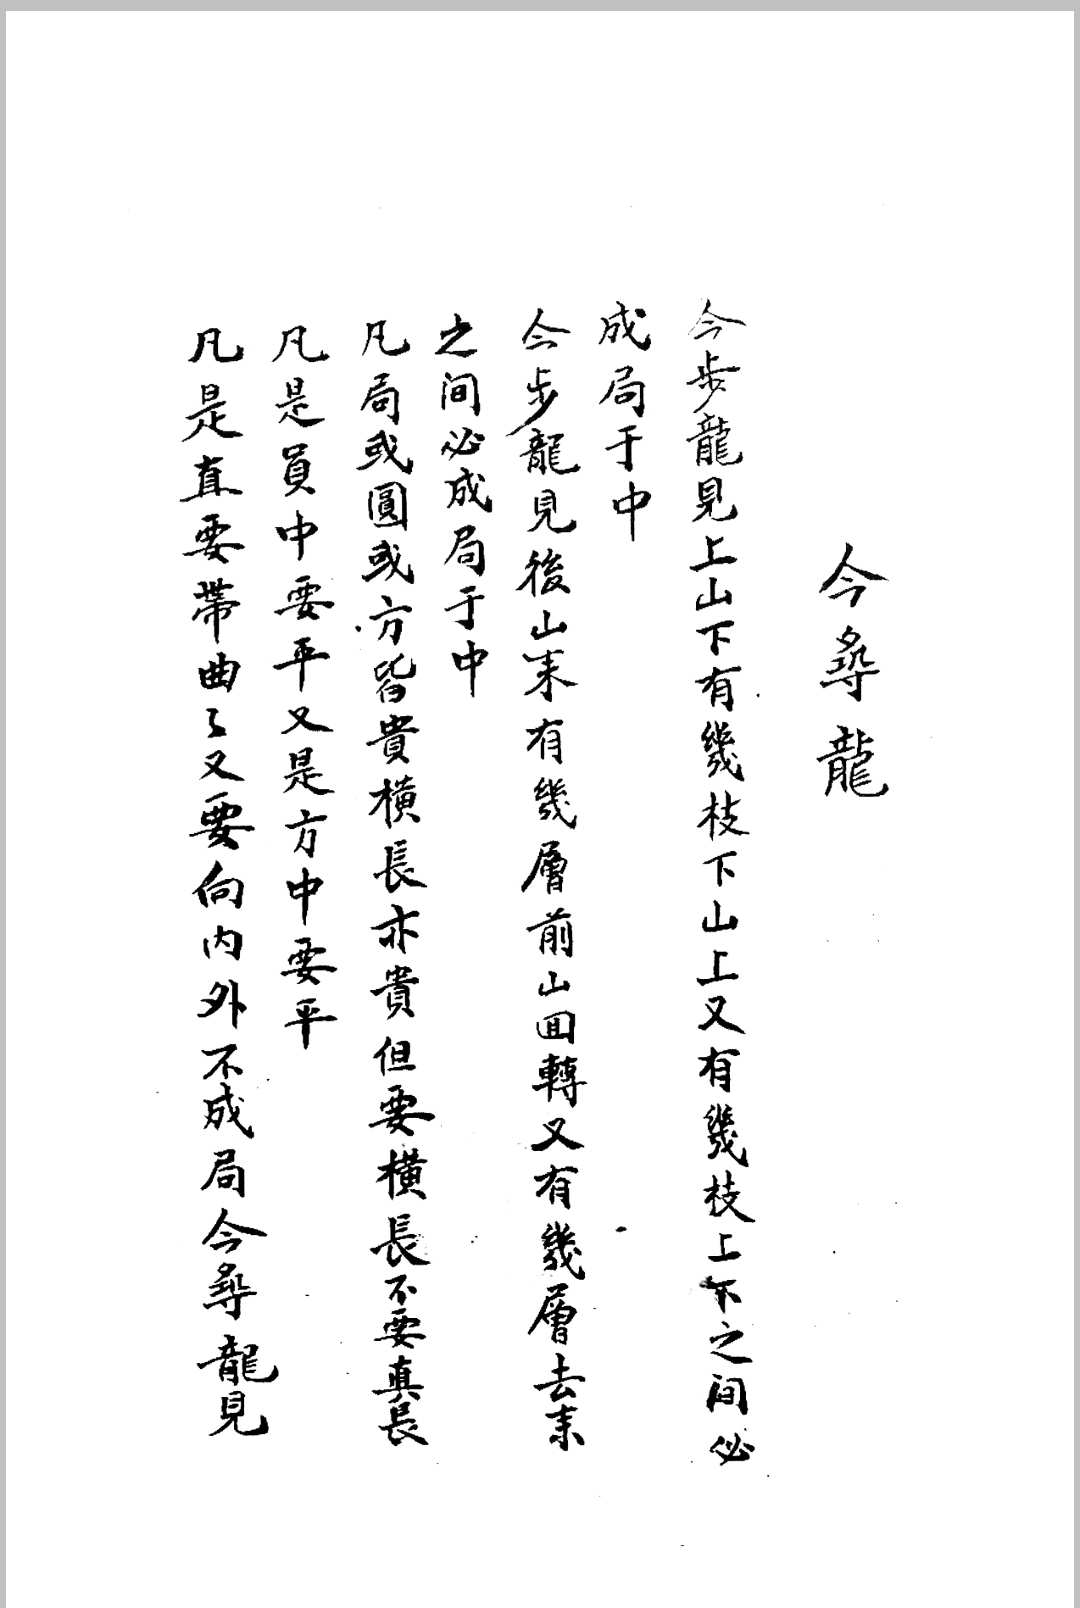 今尋龍
今步龍見上山下有幾枝下山上又有幾枝上下之间必
成局于中
今步龍見後山来有幾層前山回轉又有幾層去来
之间必成局于中
凡局或圓或方皆貴橫長亦貴但要橫長不要真長
凡是員中要平又是方中要平
凡是直要帶曲〻又要向内外不成局今尋龍見